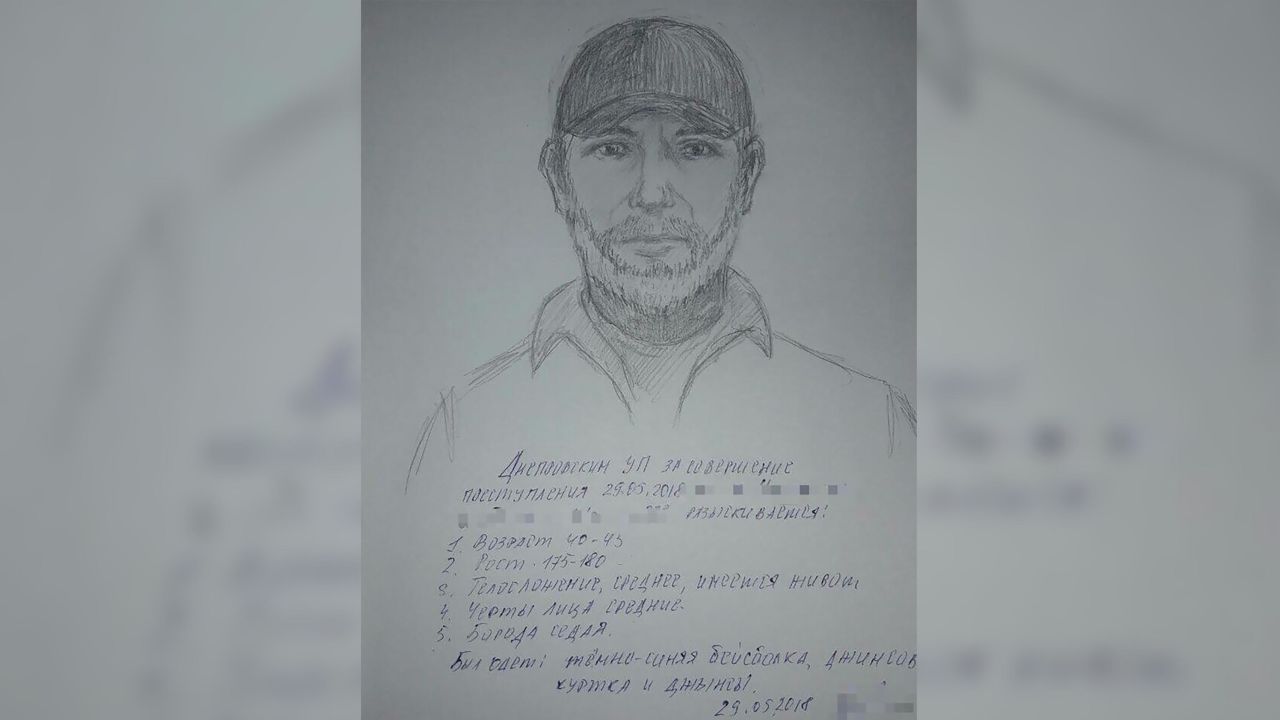 Днепровским УП за совершение
преступления 29.05.2018
разыскивается!
1. Возраст 40-45
2. Рост. 175-180
3. Телосложение, среднее, имеется живот.
4. Черты лица средние.
5. Борода седая.
Был одет: тёмно-синяя бейсболка, джинсов
куртка и джынсы.
29.05.2018